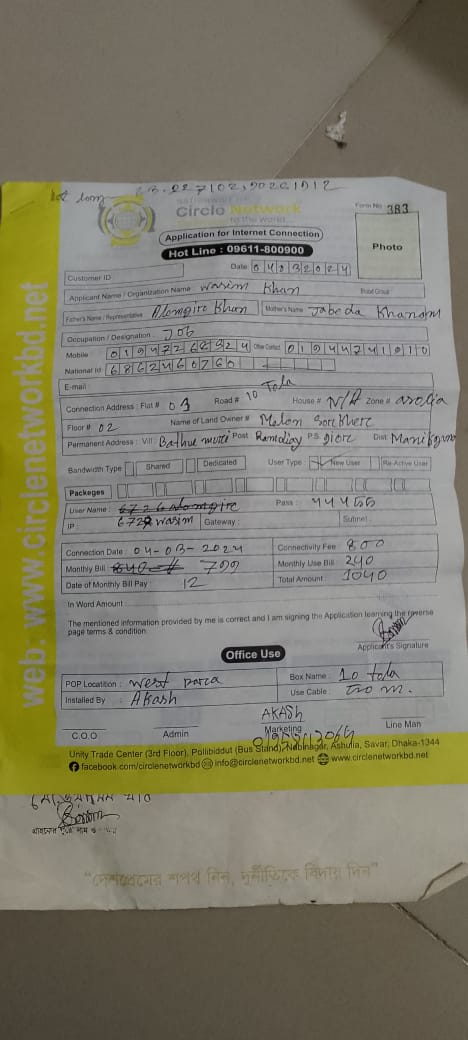 Circle Network
to the world....
Form No 383
Application for Internet Connection
Hot Line : 09611-800900
Photo
Date 04032024
Customer ID
Applicant Name / Organization Name Wasim Khan Blood Group
Father's Name / Representative Alomgire Khan Mother's Name Jabeda Khanom
Occupation / Designation Job
Mobile Other Contact
National Id 6862460760
E-mail
Connection Address : Flat # 03 Road # 10 Tola House # N/A Zone #
Floor # 02 Name of Land Owner #
Permanent Address : Vill Post P.S Dist
Bandwidth Type Shared Dedicated User Type : New User Re-Active User
Packeges
User Name : Pass : 44455
IP : 6729 wasim Gateway : Subnet :
Connection Date : 04-03-2024 Connectivity Fee 800
Monthly Bill : 799 Monthly Use Bill 240
Date of Monthly Bill Pay : 12 Total Amount 1040
In Word Amount
The mentioned information provided by me is correct and I am signing the Application learning the reverse
page terms & condition.
Applicant's Signature
Office Use
POP Locatition : west parca Box Name : 10 tola
Installed By : Akash Use Cable : m.
AKASH
C.O.O Admin Marketing Line Man
Unity Trade Center (3rd Floor), Pollibiddut (Bus Stand), Nabinagar, Ashulia, Savar, Dhaka-1344
facebook.com/circlenetworkbd info@circlenetworkbd.net www.circlenetworkbd.net
web: www.circlenetworkbd.net
“দেশপ্রেমের শপথ নিন, দুর্নীতিকে বিদায় দিন”